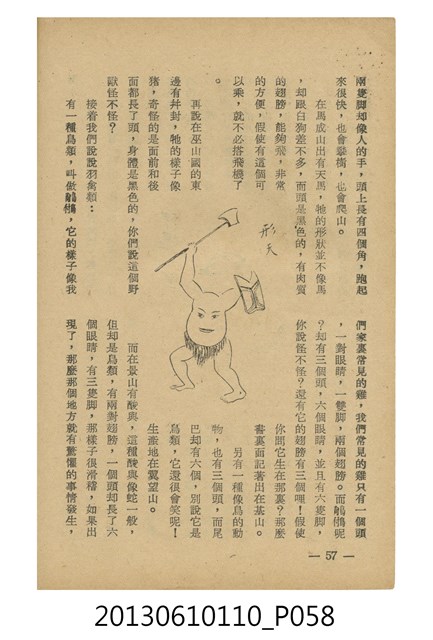 兩隻脚却像人的手，頭上長有四個角，跑起
來很快，也會攀樹，也會爬山。
在馬成山出有天馬，牠的形狀並不像馬
，却跟白狗差不多，而頭是黑色的，有肉質
的翅膀，能夠飛，非常
的方便，假使有這個可
以乘，就不必搭飛機了
。
再說在巫山國的東
邊有幷封，牠的樣子像
豬，奇怪的是面前和後
面都長了頭，身體是黑色的，你們說這個野
獸怪不怪？
接着我們說說羽禽類：
有一種鳥類，叫做，它的樣子像我
形天
們家裏常見的雞，我們常見的雞只有一個頭
，一對眼睛，一雙脚，兩個翅膀。而呢
？却有三個頭，六個眼睛，並且有六隻脚，
你說怪不怪？還有它的翅膀有三個哩！假使
你問它生在那裏？那麼
書裏面記著出在基山。
另有一種像鳥的動
物，也有三個頭，而尾
巴却有六個，別說它是
鳥類，它還很會笑呢！
生產地在翼望山。
而在景山有酸與，這種酸與像蛇一般，
但却是鳥類，有兩對翅膀，一個頭却長了六
個眼睛，有三隻脚，那樣子很滑稽，如果出
現了，那麼那個地方就有驚懼的事情發生，
— 57 —
20130610110_P058